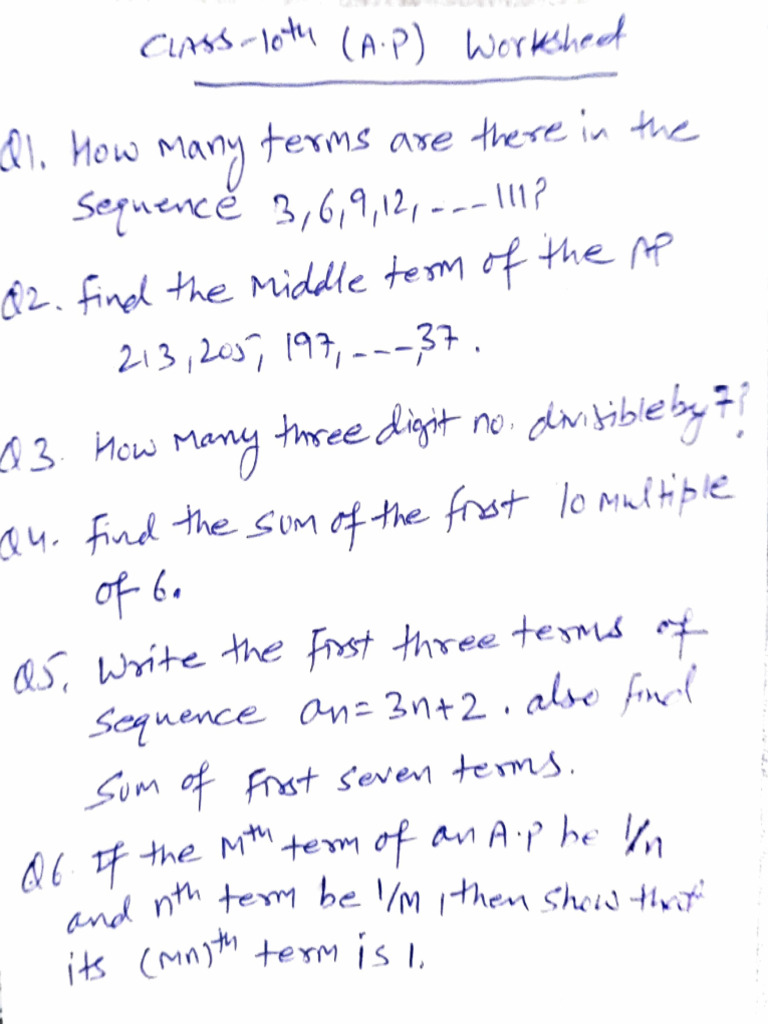 CLASS-10th (A.P) Worksheet
Q1. How Many terms are there in the
Sequence 3,6,9,12, --- 111?
Q2. find the Middle term of the AP
213, 205, 197, ---, 37.
Q3. How Many three digit no. divisible by 7?
Q4. find the sum of the first 10 Multiple
of 6.
Q5. Write the First three terms of
Sequence an = 3n+2. also find
Sum of First Seven terms.
Q6. If the Mth term of an A.P be 1/n
and nth term be 1/M, then show that
its (Mn)th term is 1.